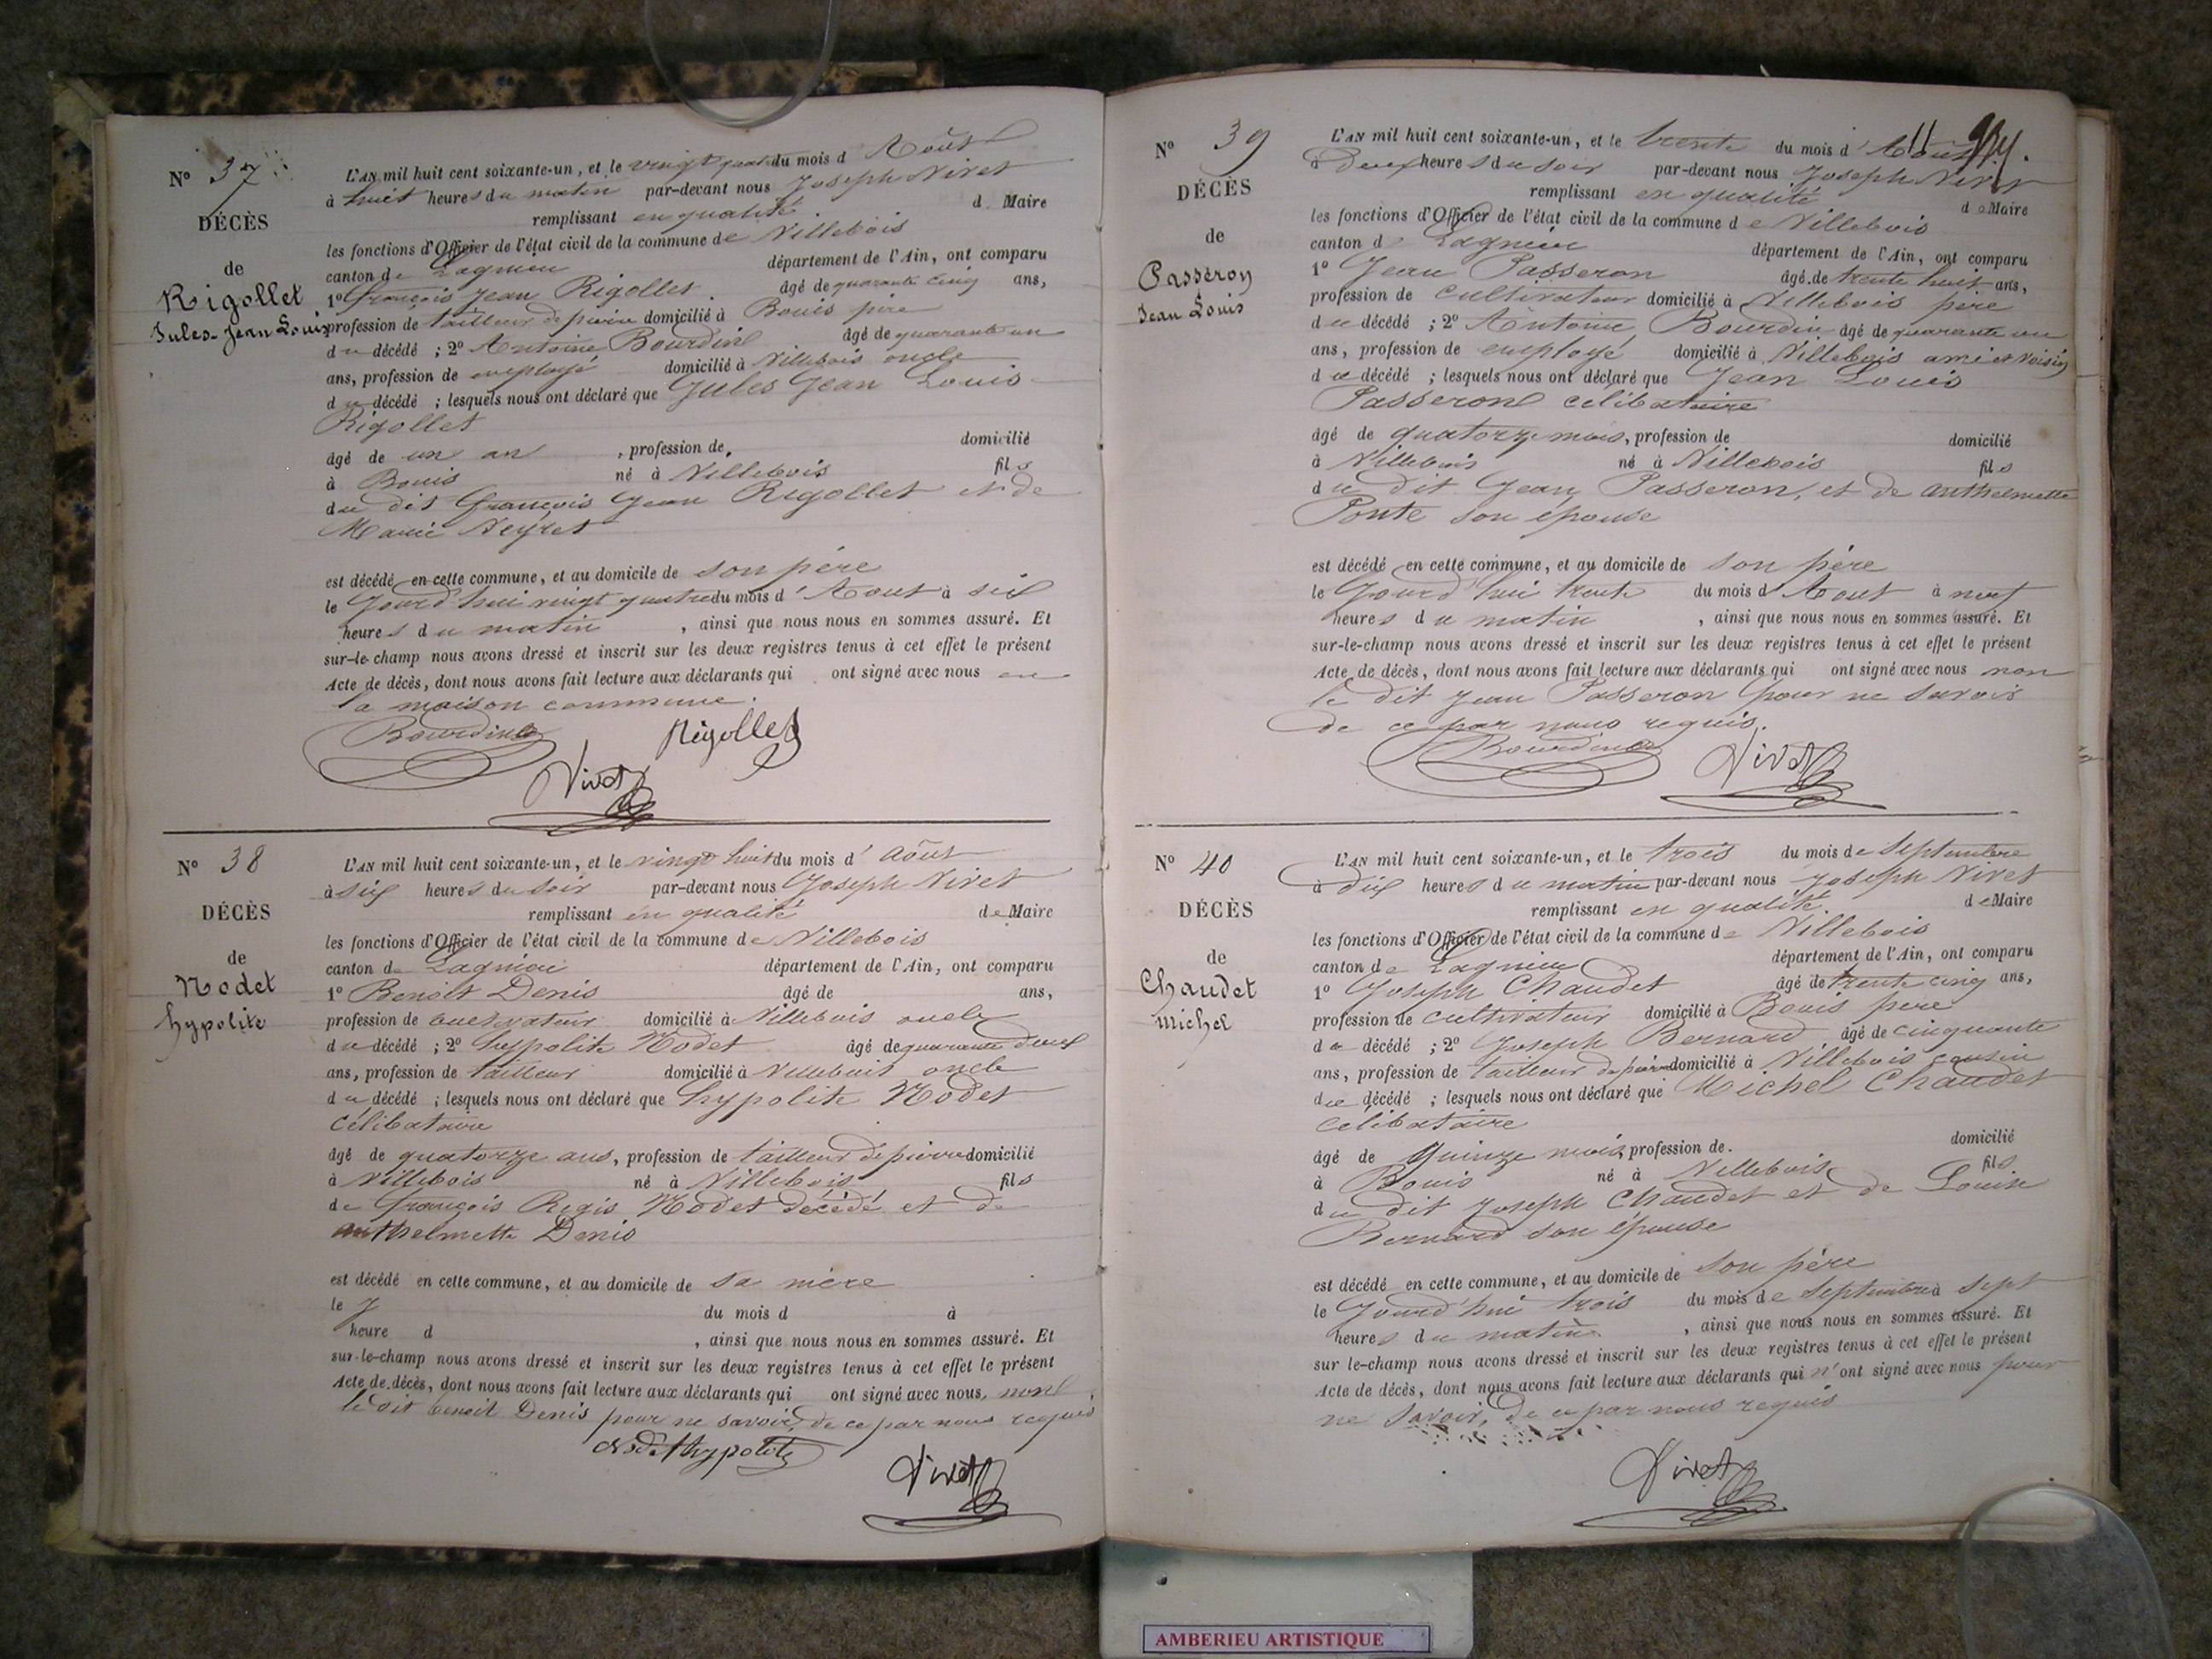 N° 37
DÉCÈS
de
Rigollet
Jules-Jean Louis
L'AN mil huit cent soixante-un, et le vingt quatre du mois d'Août
à huit heures du matin par-devant nous Joseph Vivet
remplissant en qualité d Maire
les fonctions d'Officier de l'état civil de la commune de Villebois
canton de Lagnieu département de l'Ain, ont comparu
1° françois Jean Rigollet âgé de quarante cinq ans,
profession de tailleur de pierre domicilié à Bouis père
du décédé ; 2° Antoine Bourdin âgé de quarante un
ans, profession de employé domicilié à Villebois oncle
du décédé ; lesquels nous ont déclaré que Jules Jean Louis
Rigollet
âgé de un an, profession de domicilié
à Bouis né à Villebois fils
du dit françois Jean Rigollet et de
Marie Neyret
est décédé en cette commune, et au domicile de son père
le Jourd'hui vingt quatre du mois d'Aout à six
heures du matin, ainsi que nous nous en sommes assuré. Et
sur-le-champ nous avons dressé et inscrit sur les deux registres tenus à cet effet le présent
Acte de décès, dont nous avons fait lecture aux déclarants qui ont signé avec nous en
la maison commune.
Bourdin Rigollet
Vivet
N° 38
DÉCÈS
de
Nodet
hypolite
L'AN mil huit cent soixante-un, et le vingt huit du mois d'Août
à six heures du soir par-devant nous Joseph Vivet
remplissant en qualité de Maire
les fonctions d'Officier de l'état civil de la commune de Villebois
canton de Lagnieu département de l'Ain, ont comparu
1° Benoit Denis âgé de ans,
profession de cultivateur domicilié à Villebois oncle
du décédé ; 2° hypolite Nodet âgé de quarante deux
ans, profession de tailleur domicilié à Villebois oncle
du décédé ; lesquels nous ont déclaré que hypolite Nodet
célibataire
âgé de quatorze ans, profession de tailleur de pierre domicilié
à Villebois né à Villebois fils
de françois Regis Nodet décédé et de
anthelmette Denis
est décédé en cette commune, et au domicile de sa mère
le J du mois d à
heure d , ainsi que nous nous en sommes assuré. Et
sur-le-champ nous avons dressé et inscrit sur les deux registres tenus à cet effet le présent
Acte de décès, dont nous avons fait lecture aux déclarants qui ont signé avec nous, non
le dit benoit Denis pour ne savoir, de ce par nous requis
Nodet hypolite
Vivet
N° 39
DÉCÈS
de
Passeron
Jean Louis
L'AN mil huit cent soixante-un, et le trente du mois d'Août
à Deux heures du soir par-devant nous Joseph Vivet
remplissant en qualité de Maire
les fonctions d'Officier de l'état civil de la commune de Villebois
canton d Lagnieu département de l'Ain, ont comparu
1° Jean Passeron âgé de trente huit ans,
profession de cultivateur domicilié à Villebois père
du décédé ; 2° Antoine Bourdin âgé de quarante un
ans, profession de employé domicilié à Villebois ami et voisin
du décédé ; lesquels nous ont déclaré que Jean Louis
Passeron célibataire
âgé de quatorze mois, profession de domicilié
à Villebois né à Villebois fils
du dit Jean Passeron, et de anthelmette
Ponte son épouse
est décédé en cette commune, et au domicile de son père
le Jourd'hui trente du mois d'Aout à neuf
heures du matin, ainsi que nous nous en sommes assuré. Et
sur-le-champ nous avons dressé et inscrit sur les deux registres tenus à cet effet le présent
Acte de décès, dont nous avons fait lecture aux déclarants qui ont signé avec nous non
le dit Jean Passeron pour ne savoir
de ce par nous requis.
Bourdin Vivet
N° 40
DÉCÈS
de
Chaudet
michel
L'AN mil huit cent soixante-un, et le trois du mois de Septembre
à dix heures du matin par-devant nous Joseph Vivet
remplissant en qualité. de Maire
les fonctions d'Officier de l'état civil de la commune de Villebois
canton de Lagnieu département de l'Ain, ont comparu
1° Joseph Chaudet âgé de trente cinq ans,
profession de cultivateur domicilié à Bouis père
du décédé ; 2° Joseph Bernard âgé de cinquante
ans, profession de tailleur de pierre domicilié à Villebois cousin
du décédé ; lesquels nous ont déclaré que Michel Chaudet
célibataire
âgé de quinze mois, profession de. domicilié
à Bouis né à Villebois fils
du dit Joseph Chaudet et de Louise
Bernard son épouse
est décédé en cette commune, et au domicile de son père
le Jourd'hui trois du mois de Septembre à sept
heures du matin, ainsi que nous nous en sommes assuré. Et
sur le-champ nous avons dressé et inscrit sur les deux registres tenus à cet effet le présent
Acte de décès, dont nous avons fait lecture aux déclarants qui n'ont signé avec nous pour
ne savoir, de ce par nous requis
Vivet
AMBERIEU ARTISTIQUE